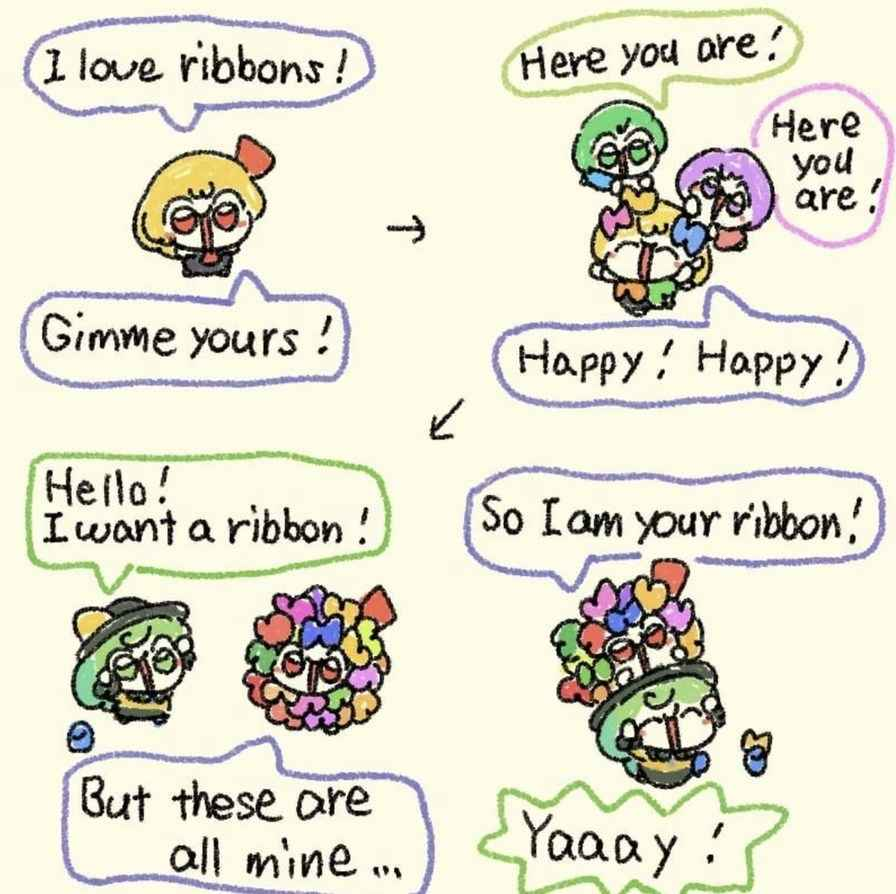 I love ribbons!
Gimme yours!
Here you are!
Here
you
are!
Happy! Happy!
Hello!
I want a ribbon!
But these are
all mine...
So I am your ribbon!
Yaaay!